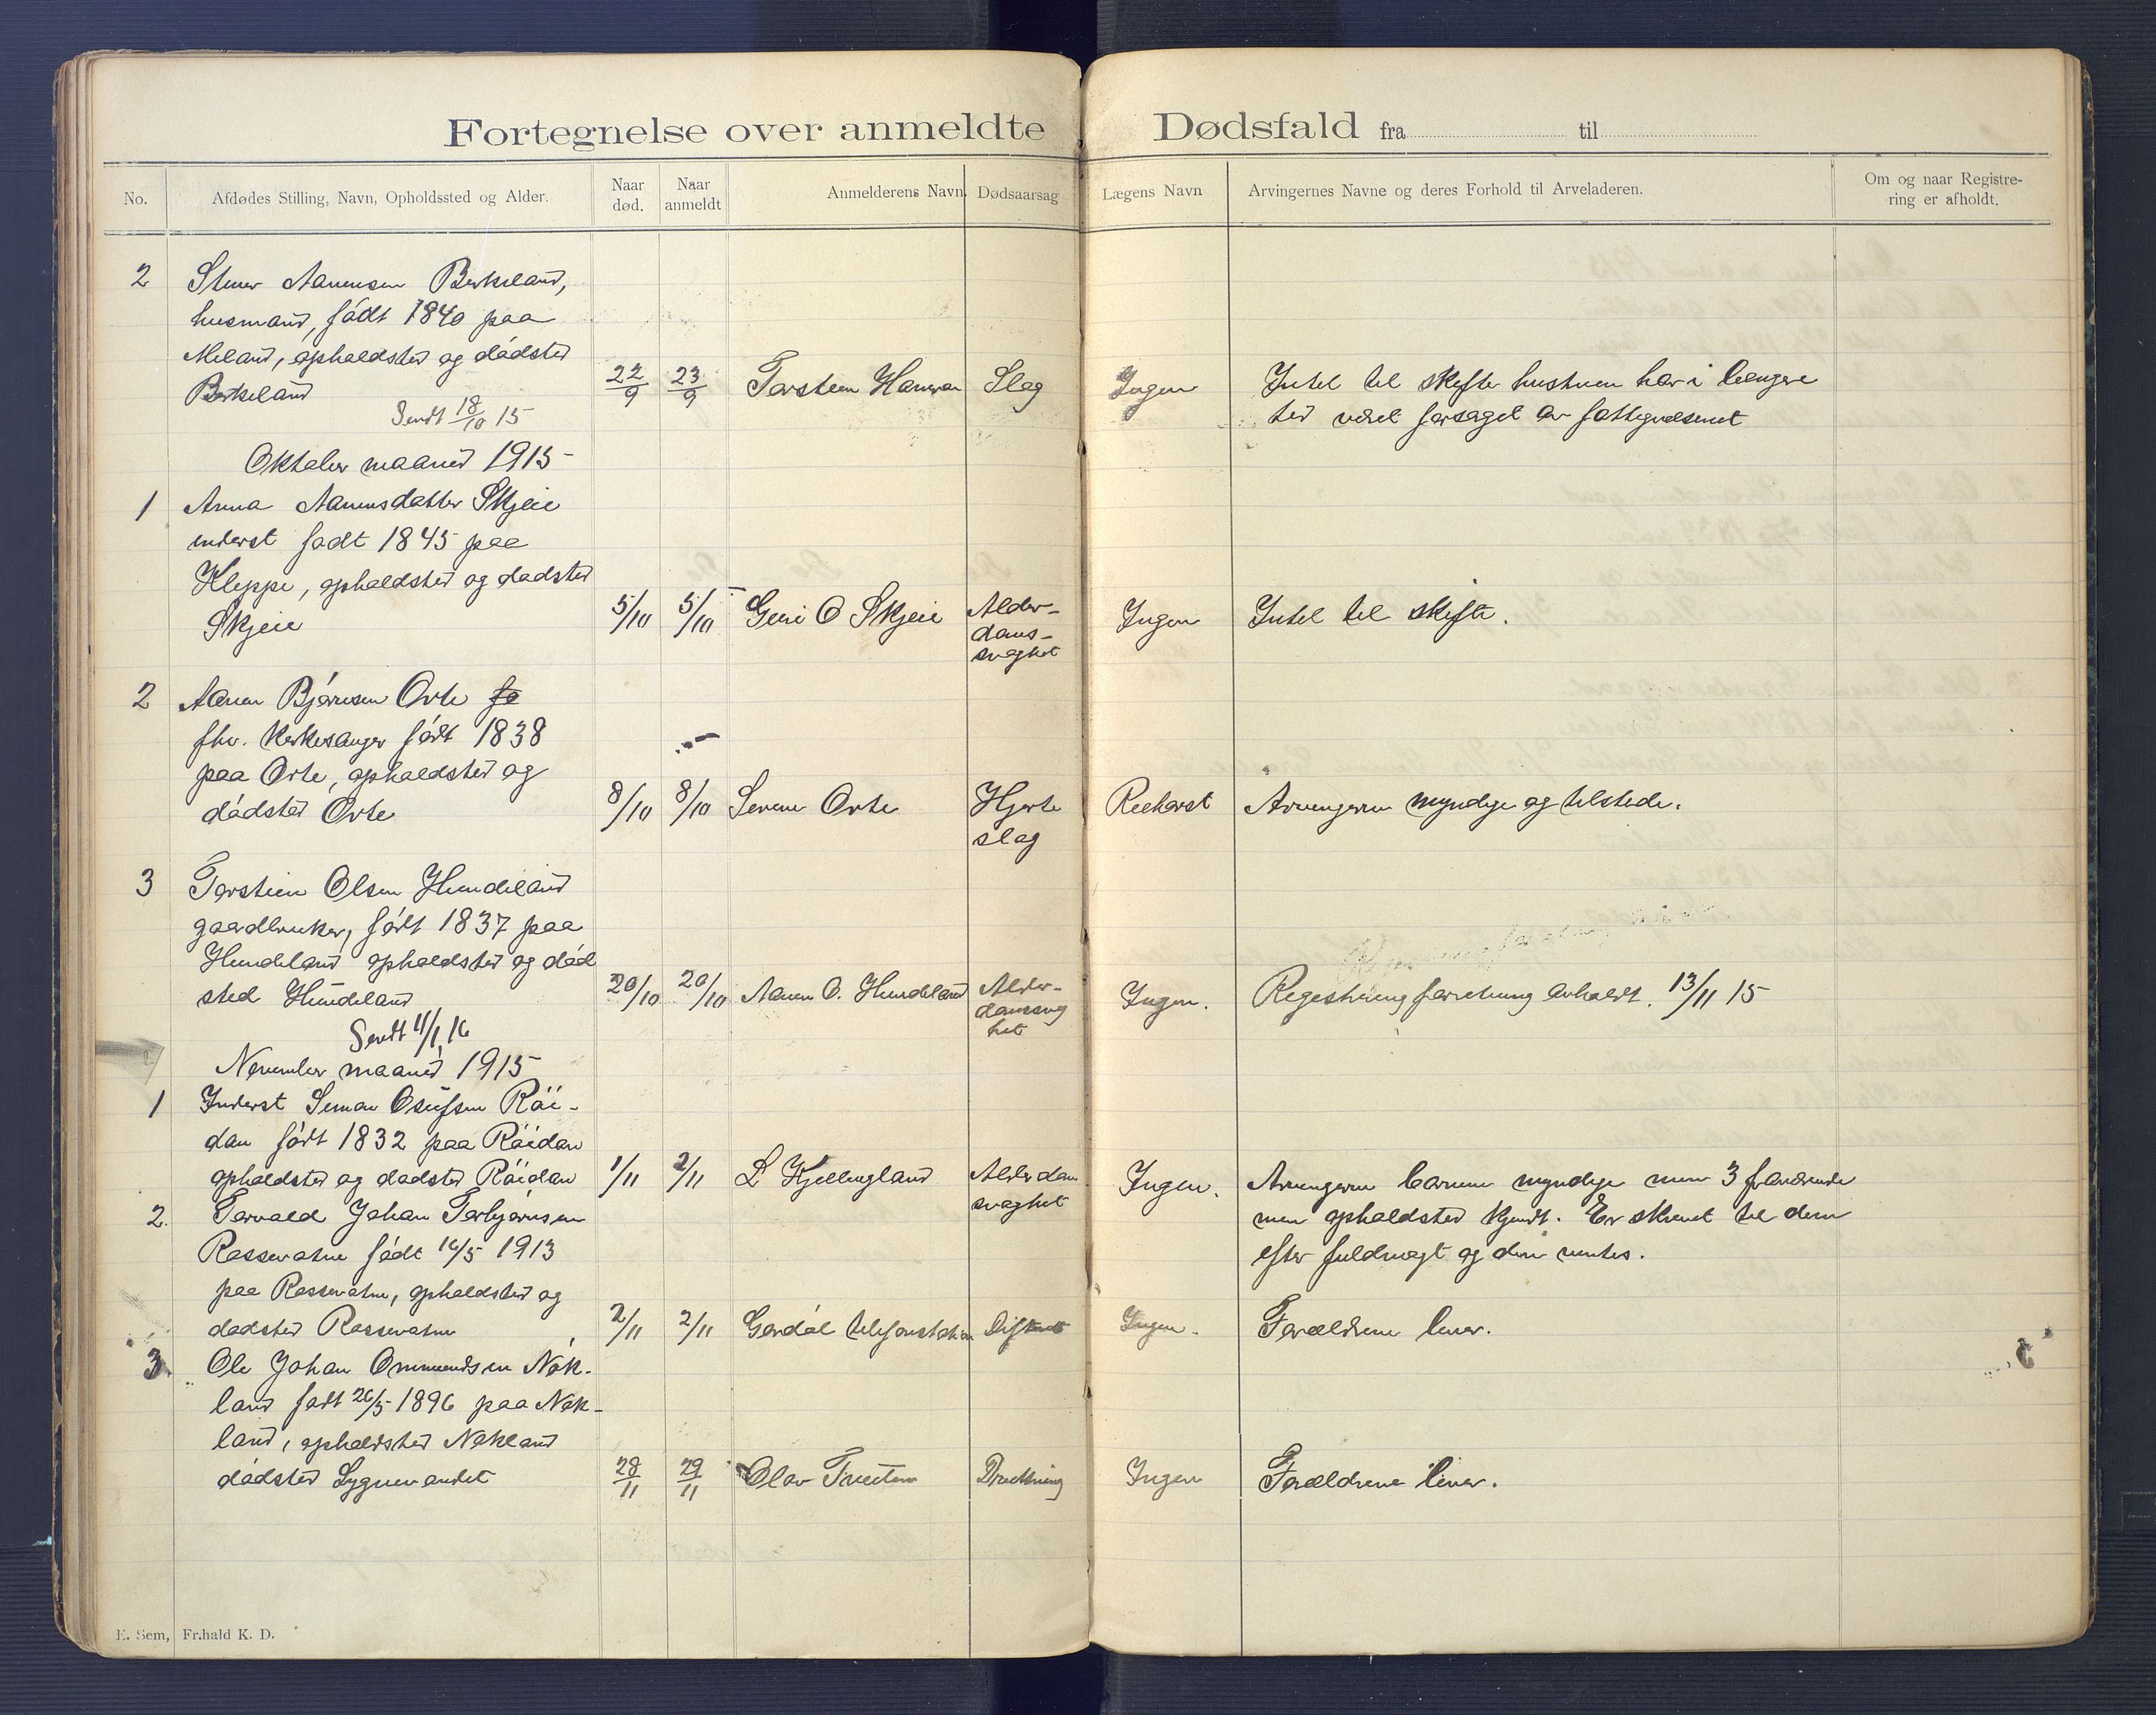 Fortegnelse over anmeldte Dødsfald fra til
No. Afdødes Stilling, Navn, Opholdssted og Alder. Naar død. Naar anmeldt Anmelderens Navn. Dødsaarsag Lægens Navn Arvingernes Navne og deres Forhold til Arveladeren. Om og naar Registrering er afholdt.
2 Aanensen Birkeland,
husmand, födt 1840 paa
Meland, opholdsted og dödsted
Birkeland 22/9 23/9 Torstein Hansen Slag Ingen Intet til skifte hustruen har i længere
tid veret forsøget av fattigvæsenet
Sendt 18/10 15
Oktober maaned 1915
1 Anna Aanensdatter Skjeie
inderst født 1845 paa
Kleppe, opholdsted og dødsted
Skjeie 5/10 5/10 Geri O Skjeie Alder-
doms-
svaghet Ingen Intet til skifte.
2 Aanen Björnsen Orte fø
fhv. kirkesanger född 1838
paa Orte, opholdsted og
dödsted Orte 8/10 8/10 Severine Orte Hjerte
slag Arvingerne myndige og tilstede.
3 Torstein Olsen Hindeland
gaardbruker, födt 1837 paa
Hindeland opholdsted og död
sted Hindeland 20/10 20/10 Aanen O. Hindeland Alder-
domssvag
het Ingen. Registreringsforretning avholdt. 13/11 15
Sendt 11/1 16
November maaned 1915
1 Inderst Simon Osufsen Röi-
dan födt 1832 paa Röidan
opholdsted og dødsted Röidan 1/11 2/11 L Kjellingland Alderdom
svaghet Ingen. Arvingerne barnene myndige men 3 fraværende
men opholdsted kjendt. Er skrevet til dem
efter fuldmagt og den ventes.
2. Torvald Johan Torbjörnsen
Rossevatne födt 16/5 1913
paa Rossevatne, opholdsted og
dødsted Rossevatne 2/11 2/11 telefonstation Difterit Ingen. Forældrene lever.
3. Ole Johan Ommundsen Nök-
land født 26/5 1896 paa Nøk-
land, opholdsted Nøkland
dödsted Lygnevandet 28/11 29/11 Olav Tveiten Drukning Ingen Forældrene lever.
E. Sem, Fr.hald K. D.